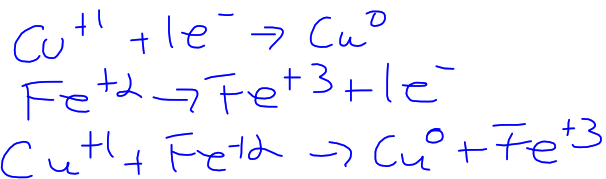 Cu⁺¹ + 1e⁻ → Cu⁰
Fe⁺² → Fe⁺³ + 1e⁻
Cu⁺¹ + Fe⁺² → Cu⁰ + Fe⁺³